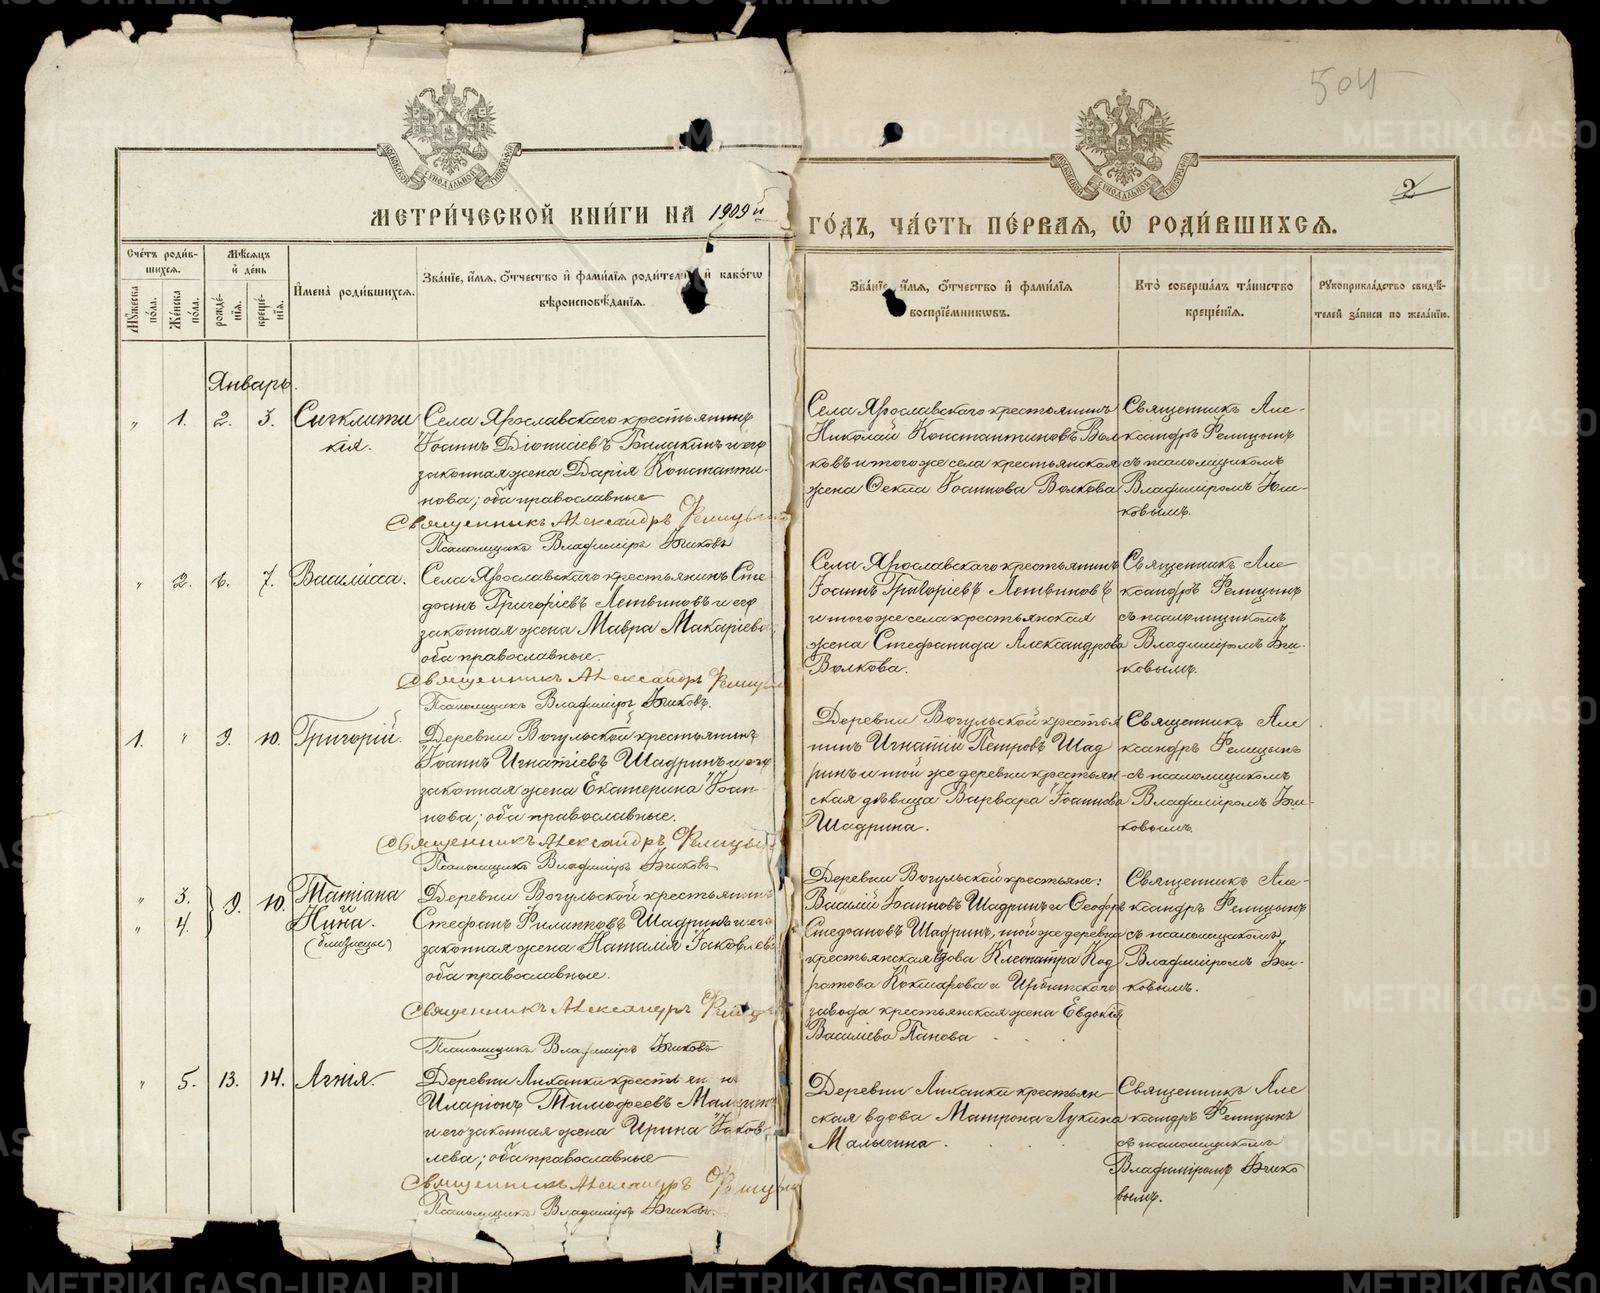 504
2
МЕТРИ́ЧЕСКОЙ КНИ́ГИ НА 1909й ГО́ДЪ, ЧА́СТЬ ПЕ́РВАЯ, Ѡ҆ РОДИ́ВШИХСЯ.
Сче́тъ роди́вшихся.
Му́жеска по́ла.
Же́нска по́ла.
Мѣ́сяцъ и҆ де́нь
рожде́нїя.
креще́нїя.
И҆мена̀ роди́вшихся.
Зва́нїе, и҆́мя, ѻ҆́тчество и҆ фами́лїя роди́телей, и҆ како́гѡ
вѣроисповѣ́данїя.
Зва́нїе, и҆́мя, ѻ҆́тчество и҆ фами́лїя
воспрїе́мникѡвъ.
Кто̀ соверша́лъ та́инство
креще́нїя.
Рукоприкла́дство свидѣ́-
телей за́писи по жела́нїю.
Январь.
„ 1. 2. 3.
Сигклити
кія.
Села Ярославскаго крестьянинъ
Іоаннъ
и его
законная жена Дарія Константи-
нова; оба православные
Священникъ Александръ
Псаломщикъ Владиміръ
Села Ярославскаго крестьянинъ
Николай Константиновъ Вол
ковъ и того же села крестьянская
жена Ѳекла Іоаннова Волкова
Священникъ Але-
ксандръ
съ псаломщикомъ
Владиміромъ
ковымъ.
„ 2. 6. 7.
Василисса.
Села Ярославскаго крестьянинъ Сте
фанъ Григоріевъ Летвиновъ и его
законная жена Мавра Макаріева
оба православные.
Священникъ Александръ
Псаломщикъ Владиміръ
Села Ярославскаго крестьянинъ
Іоаннъ Григоріевъ Летвиновъ
и того же села крестьянская
жена Стефанида Александрова
Волкова.
Священникъ Але
ксандръ
съ псаломщикомъ
Владиміромъ
ковымъ.
1. „ 9. 10.
Григорій.
Деревни Вогульской крестьянинъ
Іоаннъ Игнатіевъ Шадринъ и его
законная жена Екатерина Іоан-
нова; оба православные.
Священникъ Александръ
Псаломщикъ Владиміръ
Деревни Вогульской крестья
нинъ Игнатій Петровъ Шад
ринъ и той же деревни крестьян-
ская дѣвица Варвара Іоаннова
Шадрина.
Священникъ Але
ксандръ
съ псаломщикомъ
Владиміромъ
ковымъ.
„ 3.
„ 4.
9. 10.
Татіана
и
Нина.
(близнецы)
Деревни Вогульской крестьянинъ
Стефанъ Филипповъ Шадринъ и его
законная жена Наталія Іаковлева
оба православные.
Священникъ Александръ
Псаломщикъ Владиміръ
Деревни Вогульской крестьяне:
Василій Іоанновъ Шадринъ и Ѳеодоръ
Стефановъ Шадринъ, той же деревни
крестьянская вдова Клеопатра Код
ратова Кокшарова и Ирбитскаго
завода крестьянская жена Евдокія
Василіева Панова
Священникъ Але-
ксандръ
съ псаломщикомъ
Владиміромъ
ковымъ.
„ 5. 13. 14.
Агнія.
Деревни Лиханки крестьянинъ
Иларіонъ Тимофеевъ Малыгинъ
и его законная жена Ирина Іаков-
лева; оба православные
Священникъ Александръ
Псаломщикъ Владиміръ
Деревни Лиханки крестьян-
ская вдова Матрона Лукина
Малыгина.
Священникъ Але
ксандръ
съ псаломщикомъ
Владиміромъ
вымъ.
METRIKI.GASO-URAL.RU